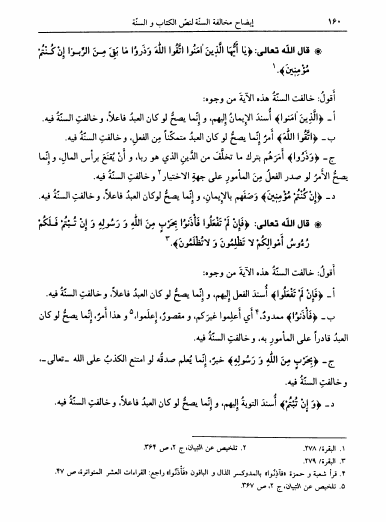 ١٦٠
إيضاح مخالفة السنّة لنصّ الكتاب و السنّة
* قال اللّه تعالى: ﴿يَا أَيُّهَا الَّذِينَ ءَامَنُوا اتَّقُوا اللَّهَ وَذَرُوا مَا بَقِىَ مِنَ الرِّبوٰا إِنْ كُنْتُمْ
مُؤْمِنِينَ﴾.١
أقولُ: خالفت السنّةُ هذه الآيةَ من وجوه:
أ ـ ﴿الَّذِينَ ءَامَنُوا﴾ أُسندَ الإيمانُ إليهم، و إنّما يصحُّ لو كان العبدُ فاعلاً، و خالفتِ السنّةُ فيه.
ب ـ ﴿اتَّقُوا اللَّهَ﴾ أمرٌ إنّما يصحُّ لو كان العبدُ متمكّناً مِن الفعلِ، و خالفتِ السنّةُ فيه.
ج ـ ﴿وَذَرُوا﴾ أمَرَهم بترك ما تخلَّفَ من الدَّينِ الذي هو ربا، و أنْ يُقتَعَ برأس المال، و إنّما
يصحُّ الأمرُ لو صدر الفعلُ مِنَ المأمورِ على جهةِ الاختيار٢ و خالفتِ السنّةُ فيه.
د ـ ﴿إِنْ كُنْتُمْ مُؤْمِنِينَ﴾ وَصَفَهم بالإيمانِ، و إنّما يصحُّ لوكان العبدُ فاعلاً، و خالفتِ السنّةُ فيه.
* قال اللّه تعالى: ﴿فَإِنْ لَمْ تَفْعَلُوا فَأْذَنُوا بِحَرْبٍ مِنَ اللَّهِ وَ رَسولِهِ وَ إِنْ تُبْتُمْ فَلَكُمْ
رُءُوسُ أَموالِكُمْ لا تَظْلِمُونَ وَ لاتُظْلَمُونَ﴾.٣
أقولُ: خالفتِ السنّةُ هذه الآيةَ من وجوه:
أ ـ ﴿فَإِنْ لَمْ تَفْعَلُوا﴾ أُسندَ الفعل إليهم، و إنّما يصحُّ لو كان العبدُ فاعلاً، و خالفتِ السنّةُ فيه.
ب ـ ﴿فَأْذَنُوا﴾ ممدودٌ،٤ أي أعلِموا غيرَكم، و مقصورٌ، إعلَموا،٥ و هذا أمرٌ، إنّما يصحُّ لو كان
العبدُ قادراً على المأمورِ به، و خالفتِ السنّةُ فيه.
ج ـ ﴿بِحَرْبٍ مِنَ اللَّهِ وَ رَسولِهِ﴾ خبرٌ، إنّما يُعلم صدقُه لو امتنع الكذبُ على الله ـ تعالى ـ،
و خالفتِ السنّةُ فيه.
د ـ ﴿وَ إِنْ تُبْتُمْ﴾ أُسندَ التوبةُ إليهم، و إنّما يصحُّ لو كان العبدُ فاعلاً، و خالفتِ السنّةُ فيه.
١. البقرة/ ٢٧٨.
٢. تلخيص عن التبيان، ج ٢، ص ٣٦٤.
٣. البقرة/ ٢٧٩.
٤. قرأ شعبة و حمزة «فآذِنُوا» بالمدوكسر الذال و الباقون «فَأْذَنُوا» راجع: القراءات العشر المتواترة، ص ٤٧.
٥. تلخيص عن التبيان، ج ٢، ص ٣٦٧.